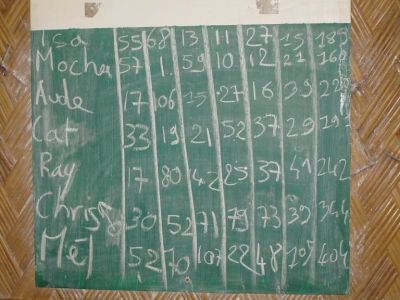 Isa 55 68 13 11 27 15 189
Mocha 57 1 59 10 12 21 160
Aude 17 106 15 27 16 39 220
Cat 33 19 21 52 37 29 191
Ray 17 80 42 25 37 41 242
Chris 30 52 71 79 73 39 344
Mél 52 70 107 22 48 105 404